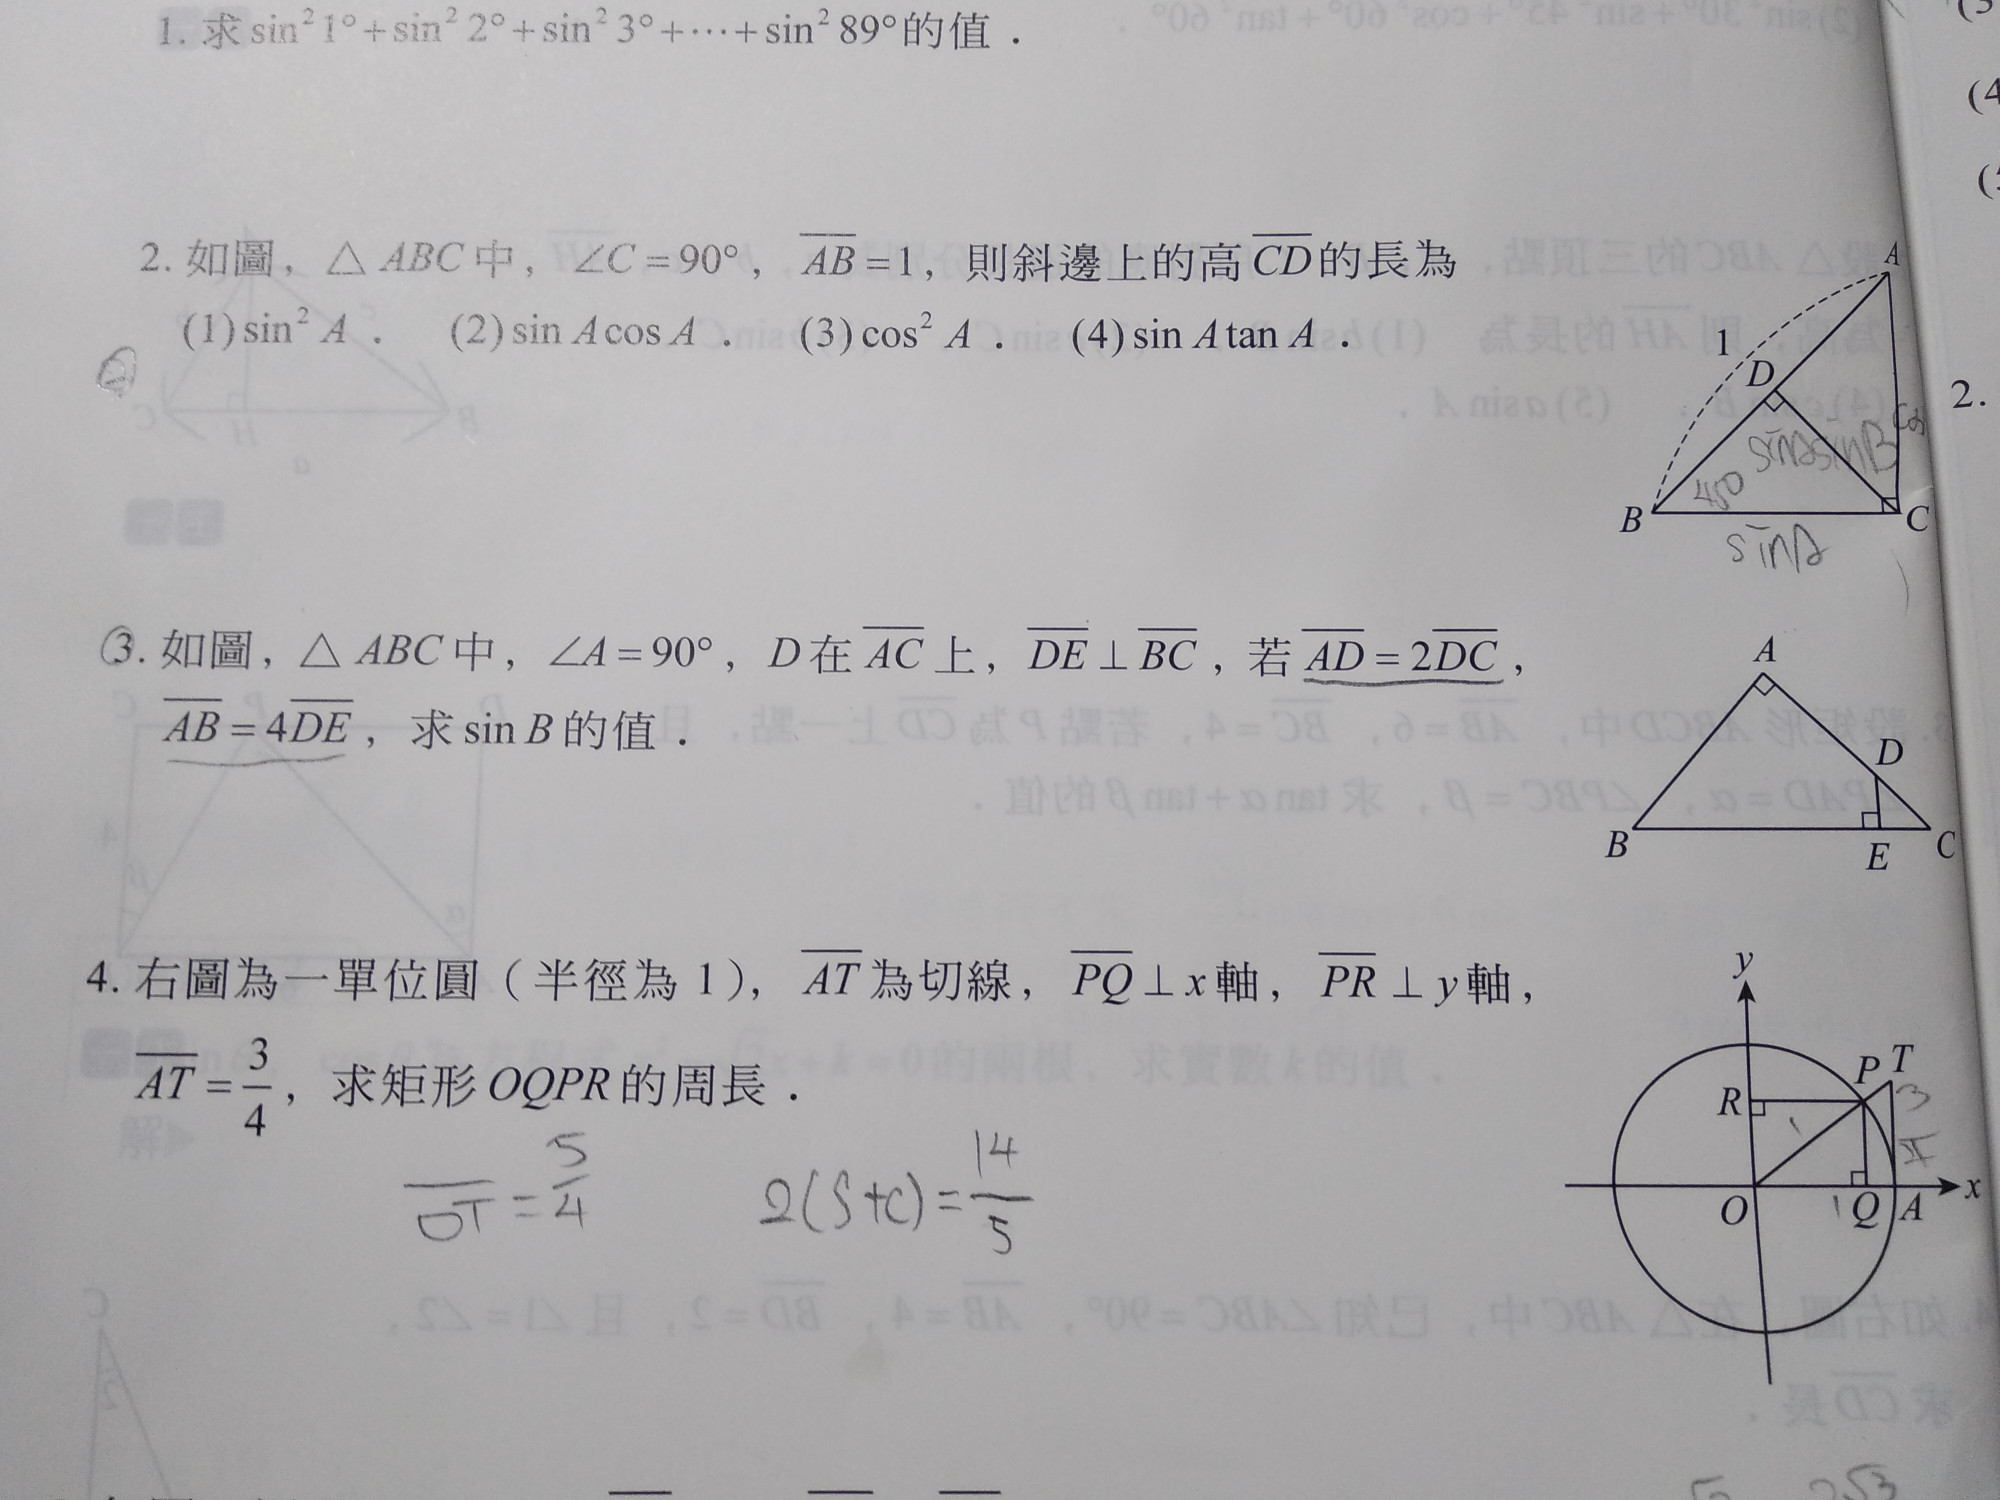 1. 求 sin² 1° + sin² 2° + sin² 3° + ⋯ + sin² 89° 的值．
2. 如圖，△ABC 中，∠C = 90°，AB = 1，則斜邊上的高 CD 的長為
(1) sin² A． (2) sin A cos A． (3) cos² A． (4) sin A tan A．
A
1
D
B
C
sinA
3. 如圖，△ABC 中，∠A = 90°，D 在 AC 上，DE ⊥ BC，若 AD = 2DC，
AB = 4DE，求 sin B 的值．
A
D
B
E
C
4. 右圖為一單位圓（半徑為 1），AT 為切線，PQ ⊥ x 軸，PR ⊥ y 軸，
AT = 3/4，求矩形 OQPR 的周長．
OT = 5/4 2(S+C) = 14/5
y
P T
R
O
Q A
x
(4
2.